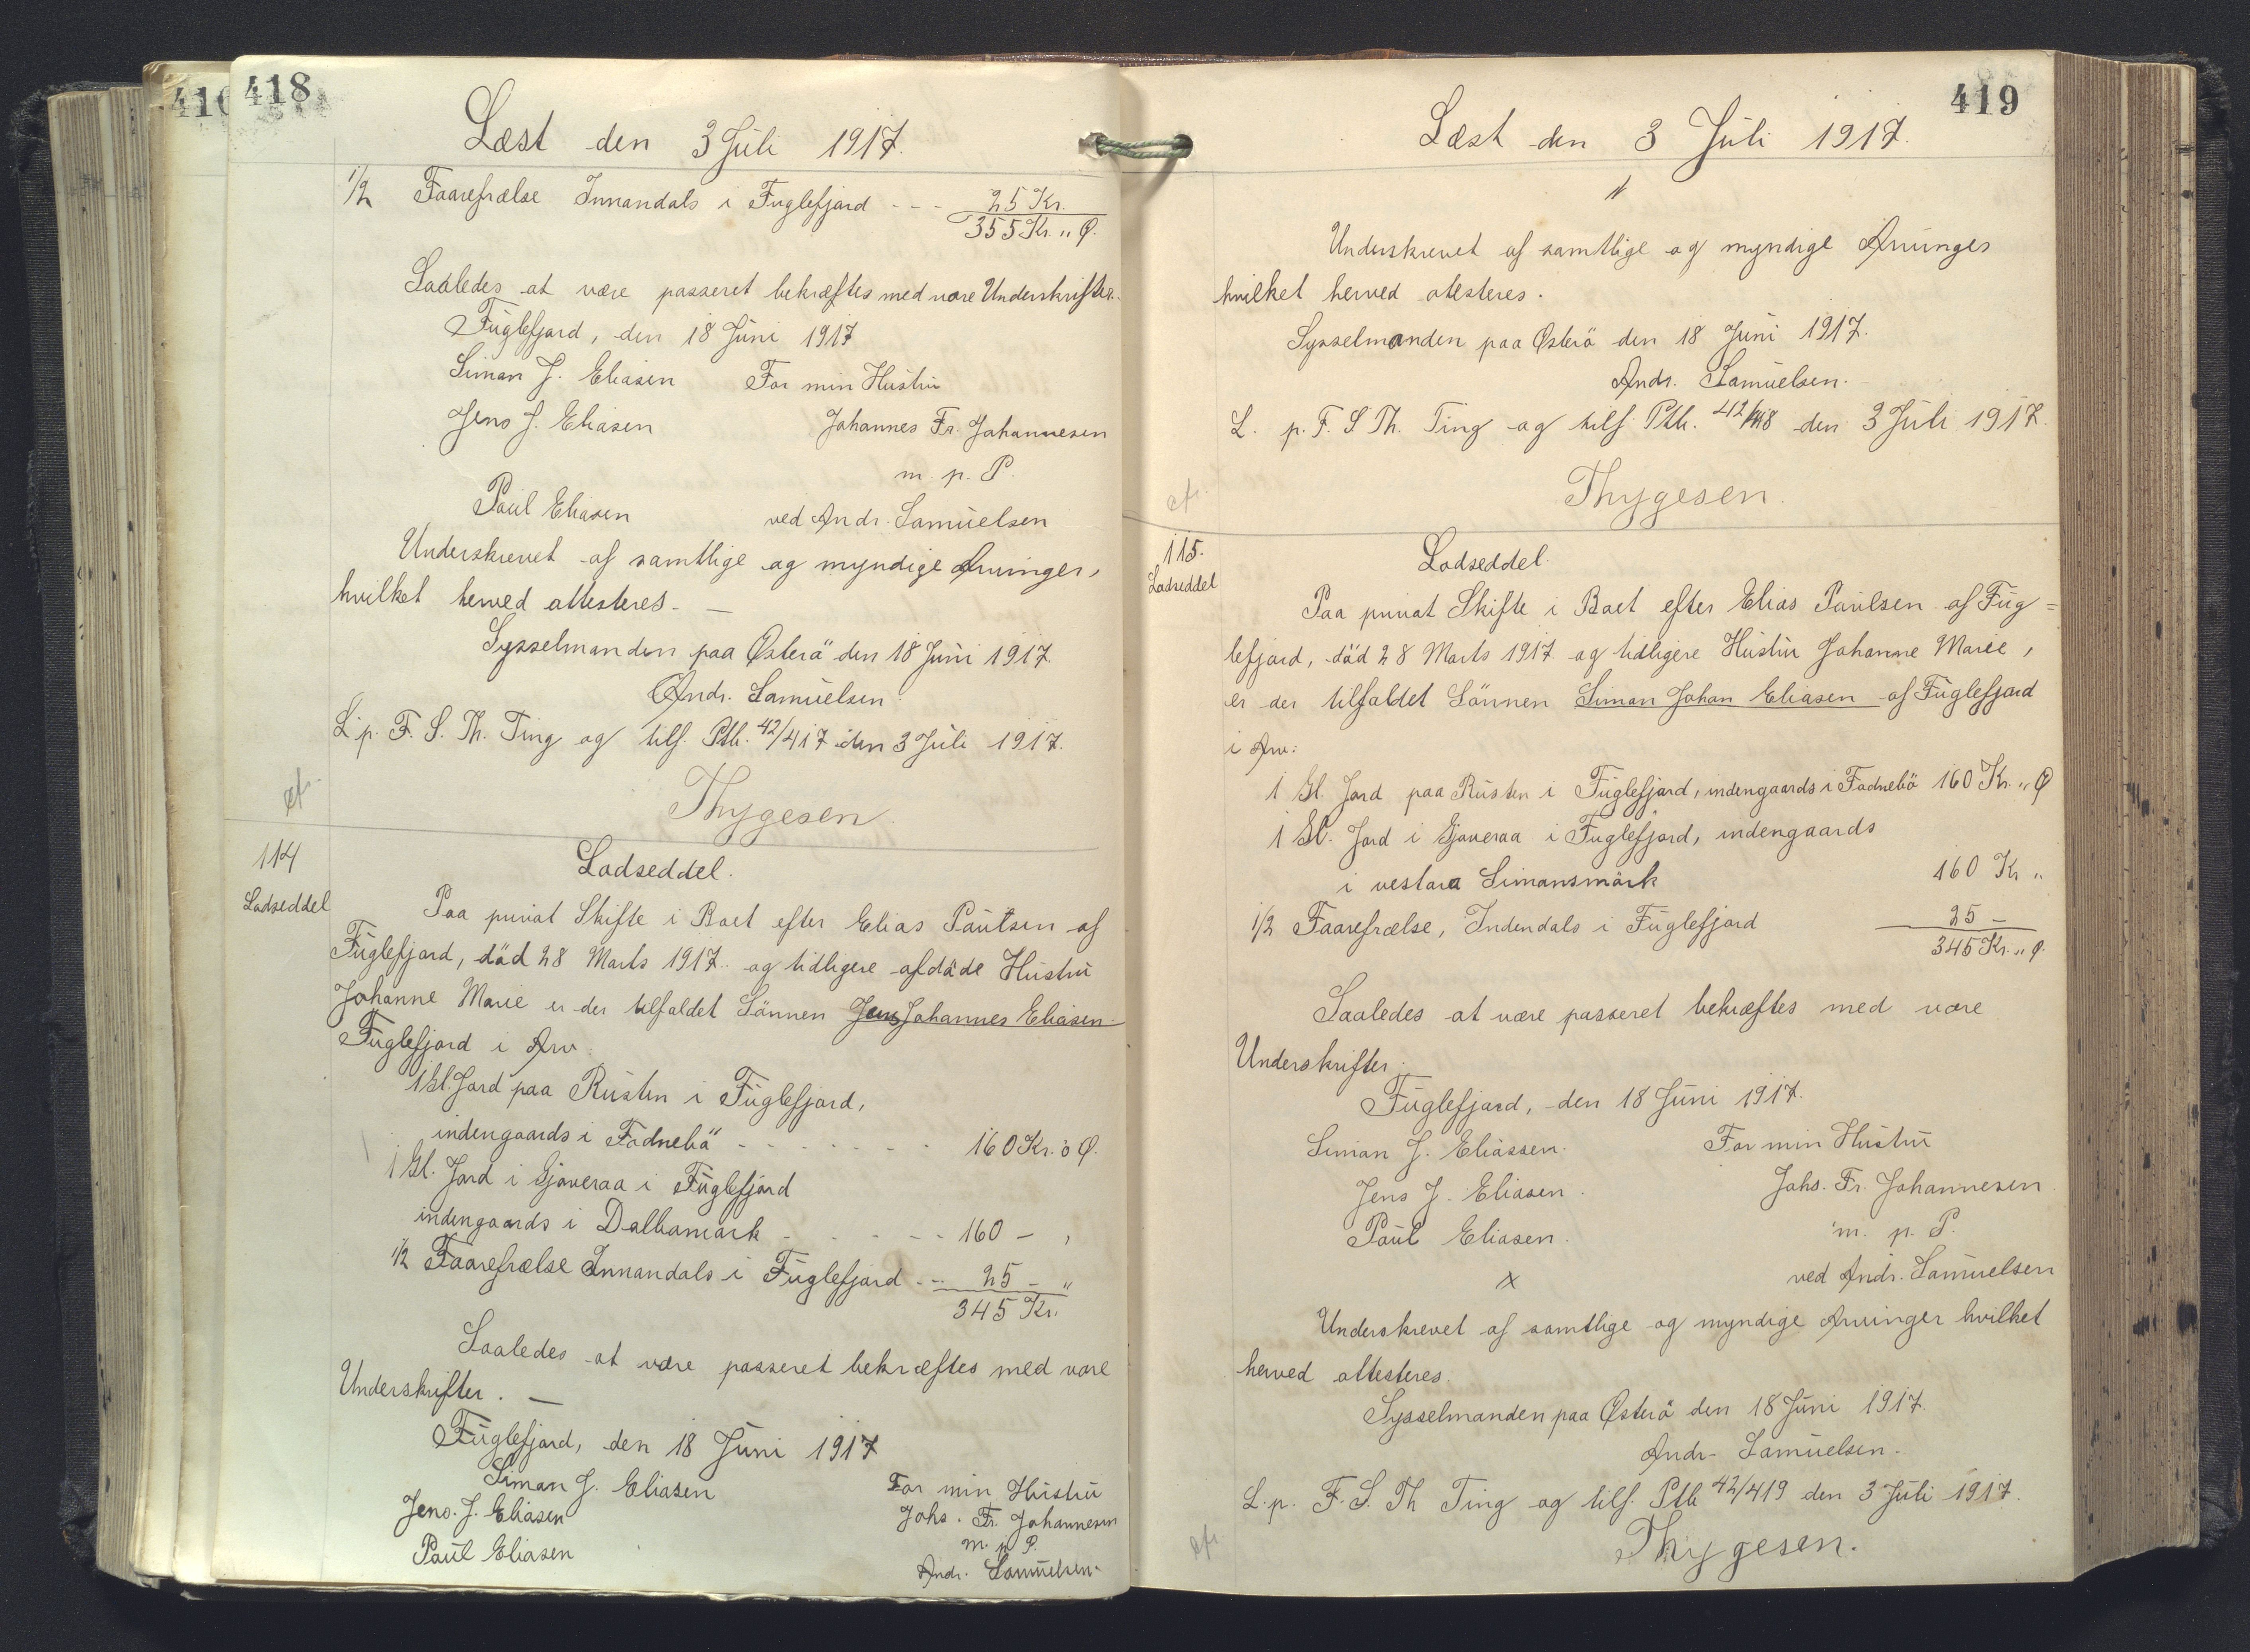 410
418
Læst den 3 Juli 1917.
1/2 Faarefrælse Innandals i Fuglefjord - - - 25 Kr.
355 Kr. " Ø.
Saaledes at være passeret bekræftes med vore Underskrifter.
Fuglefjord, den 18 Juni 1917
Siman J. Eliasen For min Hustru
Jens J. Eliasen Johannes Fr. Johannesen
m. p. P.
Paul Eliasen ved Andr. Samuelsen
Underskrevet af samtlige og myndige Arvinger,
hvilket herved attesteres. —
Sysselmanden paa Østerö den 18 Juni 1917.
Andr. Samuelsen
L. p. F. S. Th. Ting og tilf. Ptb. 42/417 den 3 Juli 1917.
cfr.
Thygesen.
114
Lodseddel
Lodseddel.
Paa privat Skifte i Boet efter Elias Paulsen af
Fuglefjord, död 28 Marts 1917. og tidligere afdöde Hustru
Johanne Marie er der tilfaldet Sönnen Jens Johannes Eliasen
Fuglefjord i Arv.
1 Gl. Jord paa Rusten i Fuglefjord,
indengaards i Fodnebö - - - - - - 160 Kr. o Ø.
1 Gl. Jord i Gjoveraa i Fuglefjord
indengaards i Dalbamörk - - - - - 160 — "
1/2 Faarefrælse Innandals i Fuglefjord - - 25 — "
345 Kr.
Saaledes at være passeret bekræftes med vore
Underskrifter. —
Fuglefjord, den 18 Juni 1917
Siman J. Eliasen For min Hustru
Jens. J. Eliasen Johs. Fr. Johannesen
m. p. P.
Paul Eliasen Andr. Samuelsen.
419
Læst den 3 Juli 1917.
Underskrevet af samtlige og myndige Arvinges
hvilket herved attesteres.
Sysselmanden paa Østerö den 18 Juni 1917.
Andr. Samuelsen.
L. p. F. S. Th. Ting og tilf. Ptb. 42/418 den 3 Juli 1917.
cfr.
Thygesen.
115.
Lodseddel
Lodseddel.
Paa privat Skifte i Boet efter Elias Paulsen af Fug=
lefjord, död 28 Marts 1917 og tidligere Hustru Johanne Marie,
er der tilfaldet Sönnen Siman Johan Eliasen af Fuglefjord
i Arv:
1 Gl. Jord paa Rusten i Fuglefjord, indengaards i Fodnebö 160 Kr. " Ø
1 Gl. Jord i Gjoveraa i Fuglefjord, indengaards
i vestara Simansmörk 160 Kr "
1/2 Faarefrælse, Indendals i Fuglefjord 25 —
345 Kr. " Ø.
Saaledes at være passeret bekræftes med vore
Underskrifter.
Fuglefjord, den 18 Juni 1917.
Siman J. Eliassen. For min Hustru
Jens J. Eliasen. Johs. Fr. Johannesen
Paul Eliasen. m. p. P.
x ved Andr. Samuelsen
Underskrevet af samtlige og myndige Arvinger hvilket
herved attesteres.
Sysselmanden paa Østerö den 18 Juni 1917.
Andr. Samuelsen.
L. p. F. S. Th Ting og tilf. Ptb 42/419 den 3 Juli 1917.
cfr
Thygesen.